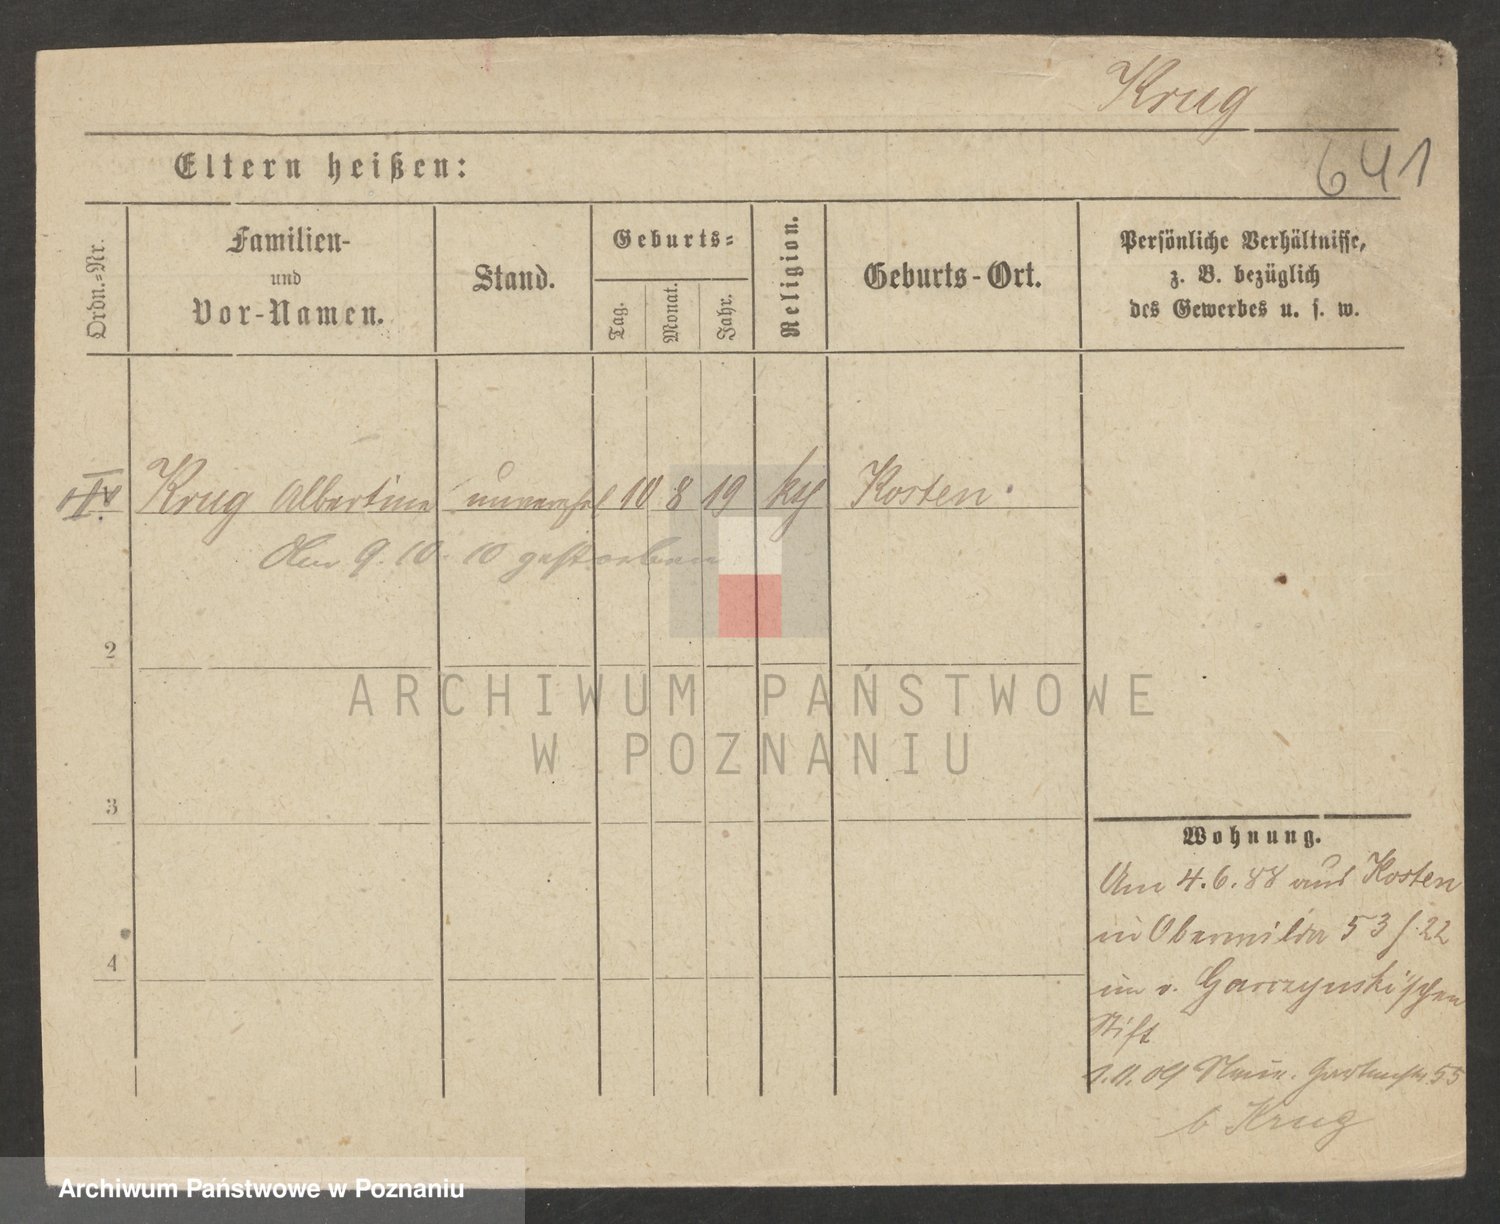 Krug
641
Eltern heißen:
Ordn.-Nr.
Familien-
und
Vor-Namen.
Stand.
Geburts-
Tag.
Monat.
Jahr.
Religion.
Geburts-Ort.
Persönliche Verhältnisse,
z. B. bezüglich
des Gewerbes u. s. w.
Krug Albertine 10 8 19 Kosten.
9. 10. 10 gestorben
2
3
4
Wohnung.
Am 4.6.88 aus Kosten
in Oberwilda 53 22
im v. Garczynski'schen
Stift
Gartenstr. 55
b Krug
ARCHIWUM PAŃSTWOWE
W POZNANIU
Archiwum Państwowe w Poznaniu